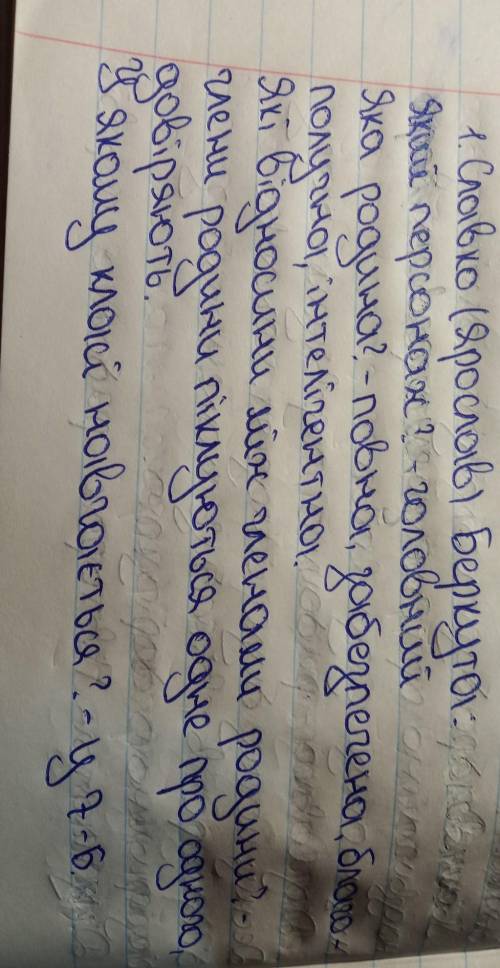 1. Славко (Ярослав) Беркута:
який персонаж? - головний
Яка родина? - повна, забезпечена, благо-
получна, інтелігентна.
Які відносини між членами родини? -
члени родини піклуються одне про одного,
довіряють.
У якому класі навчається? - у 7-Б.